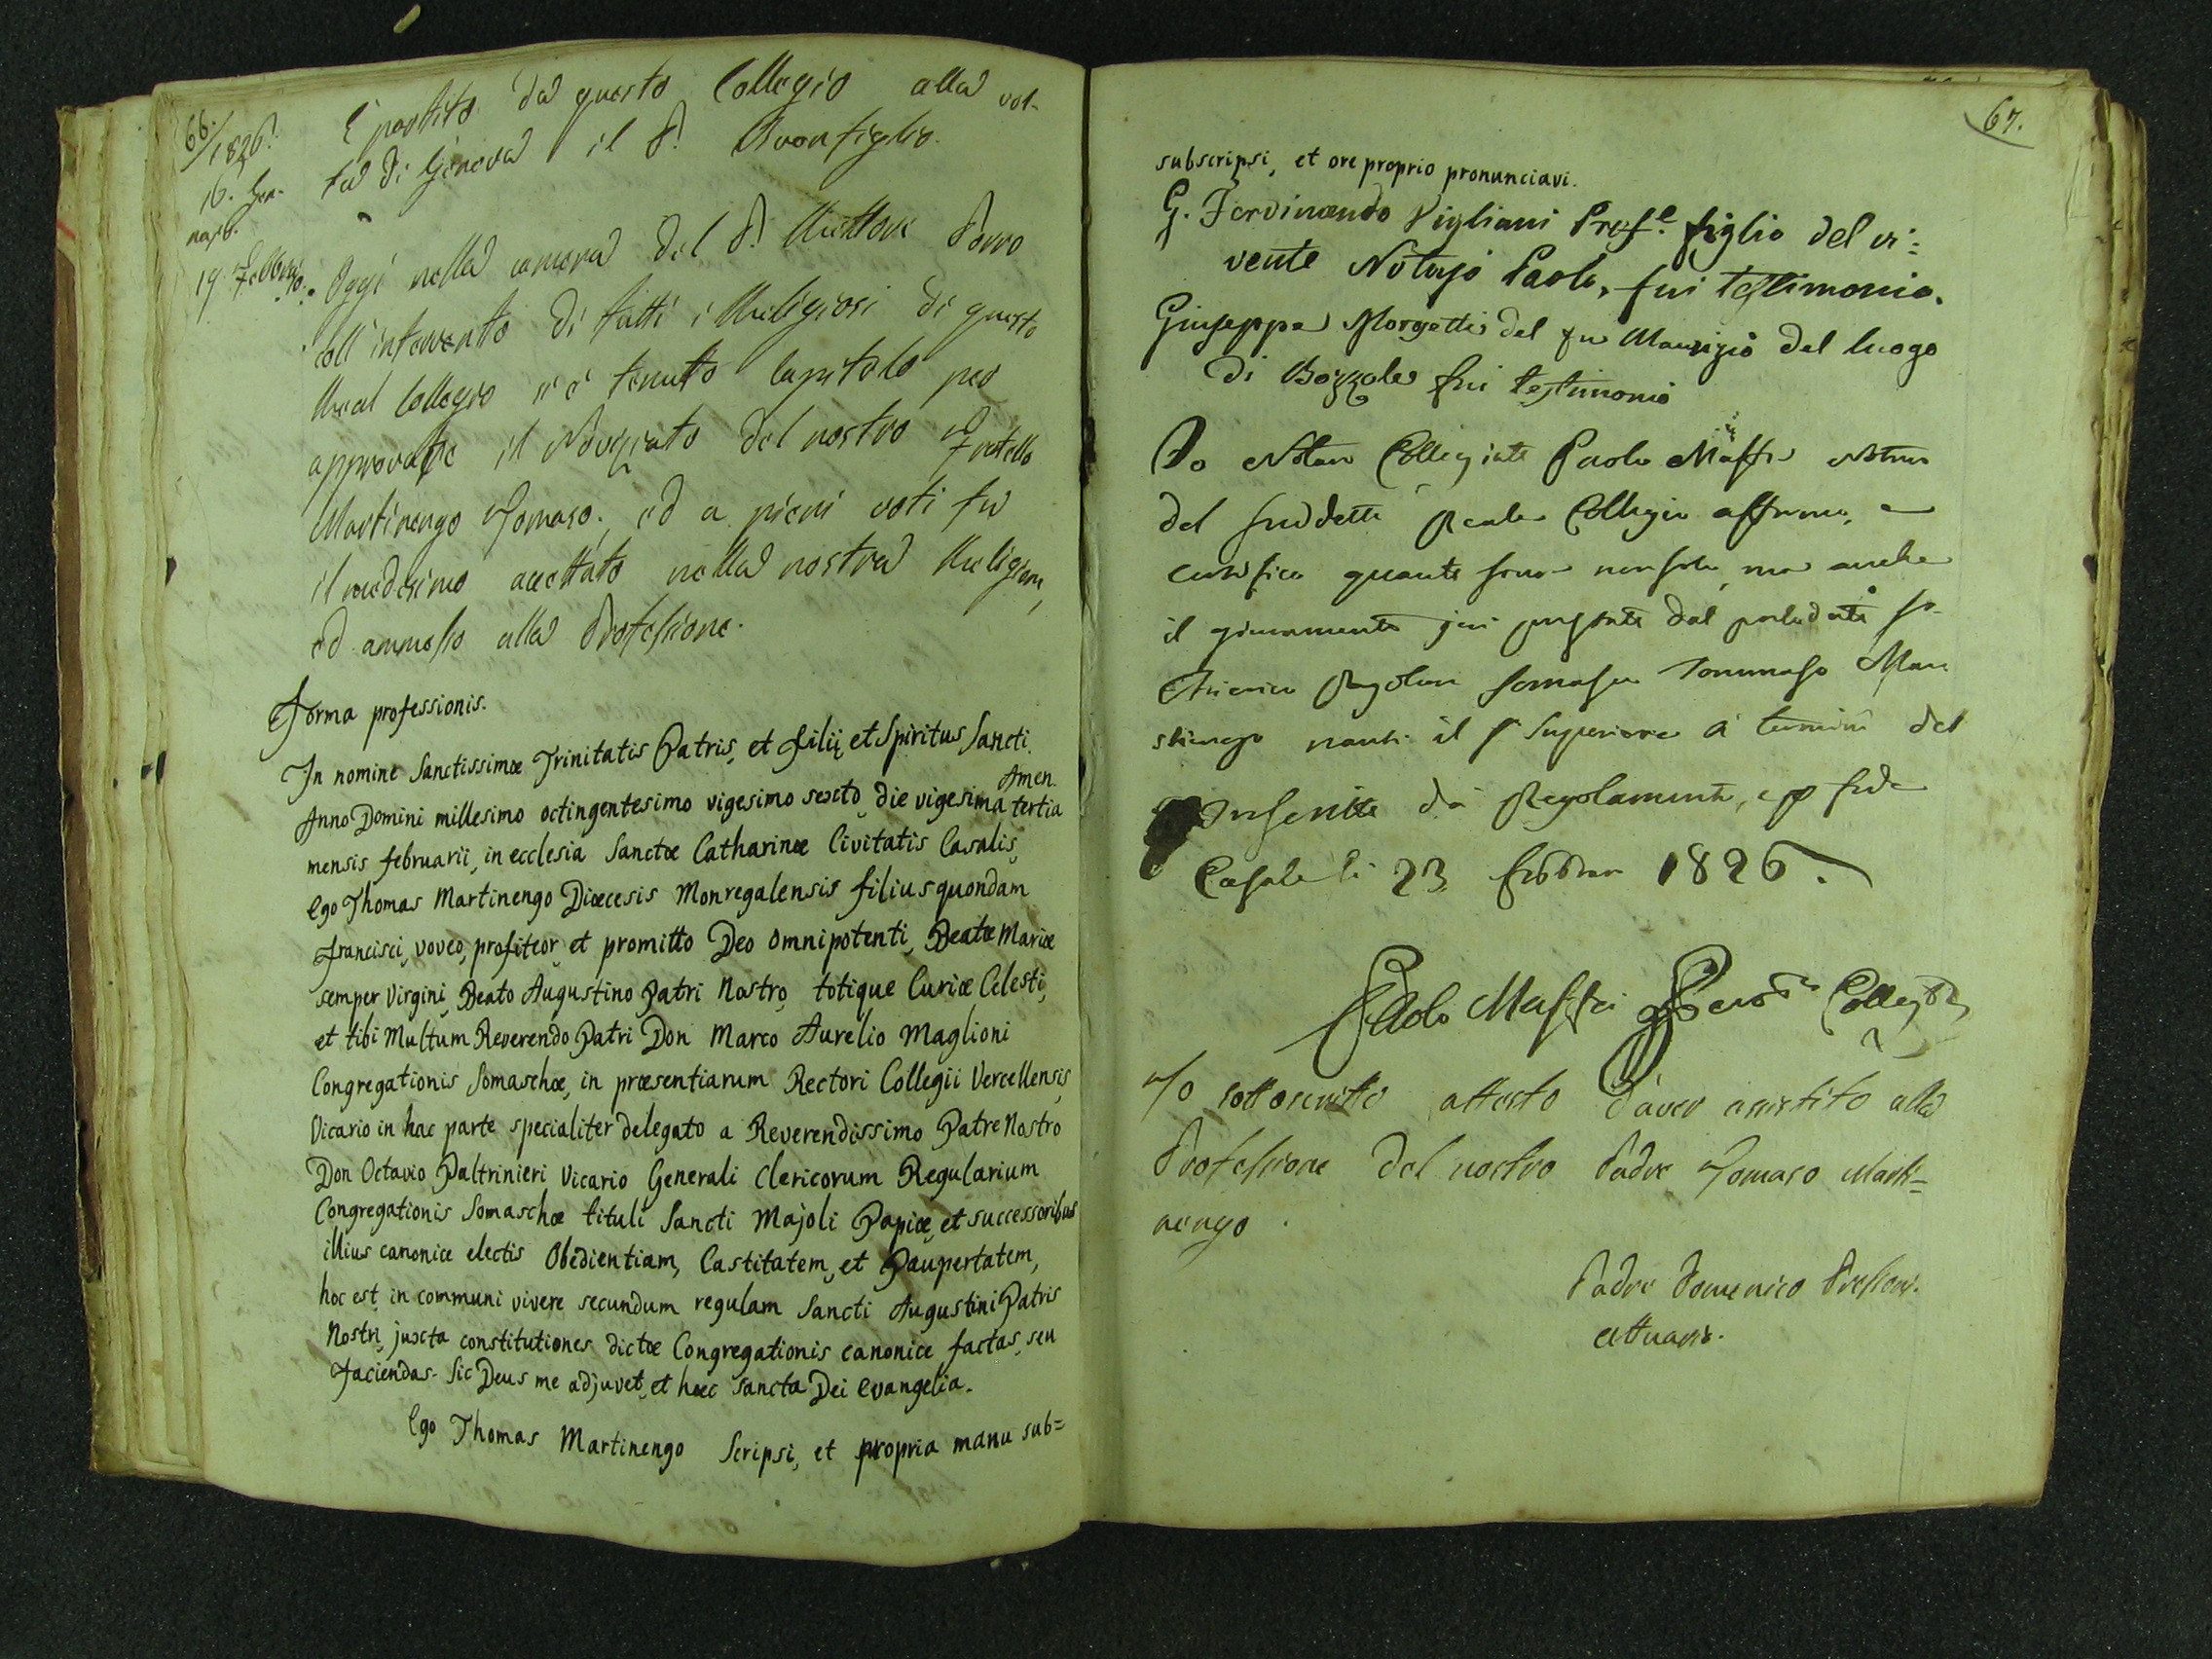 66.
1826.
16. Gen-
najo.
È partito da questo Collegio alla vol-
ta di Genova il P. Buonfiglio.
19 Febbrajo.
Oggi nella camera del P. Rettore Porro
coll'intervento di tutti i Religiosi di questo
Real Collegio si è tenuto Capitolo per
approvare il Noviziato del nostro Fratello
Martinengo Tomaso. ed a pieni voti fu
il medesimo accettato nella nostra Religione,
ed ammesso alla Professione.
Forma professionis.
In nomine Sanctissimæ Trinitatis Patris, et Filii, et Spiritus Sancti.
Amen.
Anno Domini millesimo octingentesimo vigesimo sexto, die vigesima tertia
mensis februarii, in ecclesia Sanctæ Catharinæ Civitatis Casalis,
Ego Thomas Martinengo Diœcesis Monregalensis filius quondam
Francisci, voveo, profiteor, et promitto Deo Omnipotenti, Beatæ Mariæ
semper Virgini, Beato Augustino Patri Nostro, totique Curiæ Celesti,
et tibi Multum Reverendo Patri Don Marco Aurelio Maglioni
Congregationis Somaschæ, in præsentiarum Rectori Collegii Vercellensis,
Vicario in hac parte specialiter delegato a Reverendissimo Patre Nostro
Don Octavio Paltrinieri Vicario Generali Clericorum Regularium
Congregationis Somaschæ tituli Sancti Majoli Papiæ, et successoribus
illius canonice electis Obedientiam, Castitatem, et Paupertatem,
hoc est in communi vivere secundum regulam Sancti Augustini Patris
Nostri, juxta constitutiones dictæ Congregationis canonice factas, seu
faciendas. Sic Deus me adjuvet, et hæc Sancta Dei evangelia.
Ego Thomas Martinengo Scripsi, et propria manu sub=
67.
subscripsi, et ore proprio pronunciavi.
G. Ferdinando Vigliani Prof.e figlio del vi=
vente Notajo Paolo, fui testimonio.
Giuseppe Morgetti del fu Maurizio del luogo
di Bozzole fui testimonio
Io Notaro Collegiato Paolo Maffei
del suddetto Reale Collegio affermo, e
certifico quanto sovra non solo, ma anche
il giuramento ivi prestato dal
Chierico Regolare Somasco Tommaso Mar
tinengo nanti il P Superiore a' termini del
da Regolamento, e p fede
Casale li 23 Febbraro 1826.
Paolo Maffei
Io sottoscritto attesto d'aver assistito alla
Professione del nostro Padre Tomaso Marti=
nengo.
Padre Domenico Pressoni.
attuario.